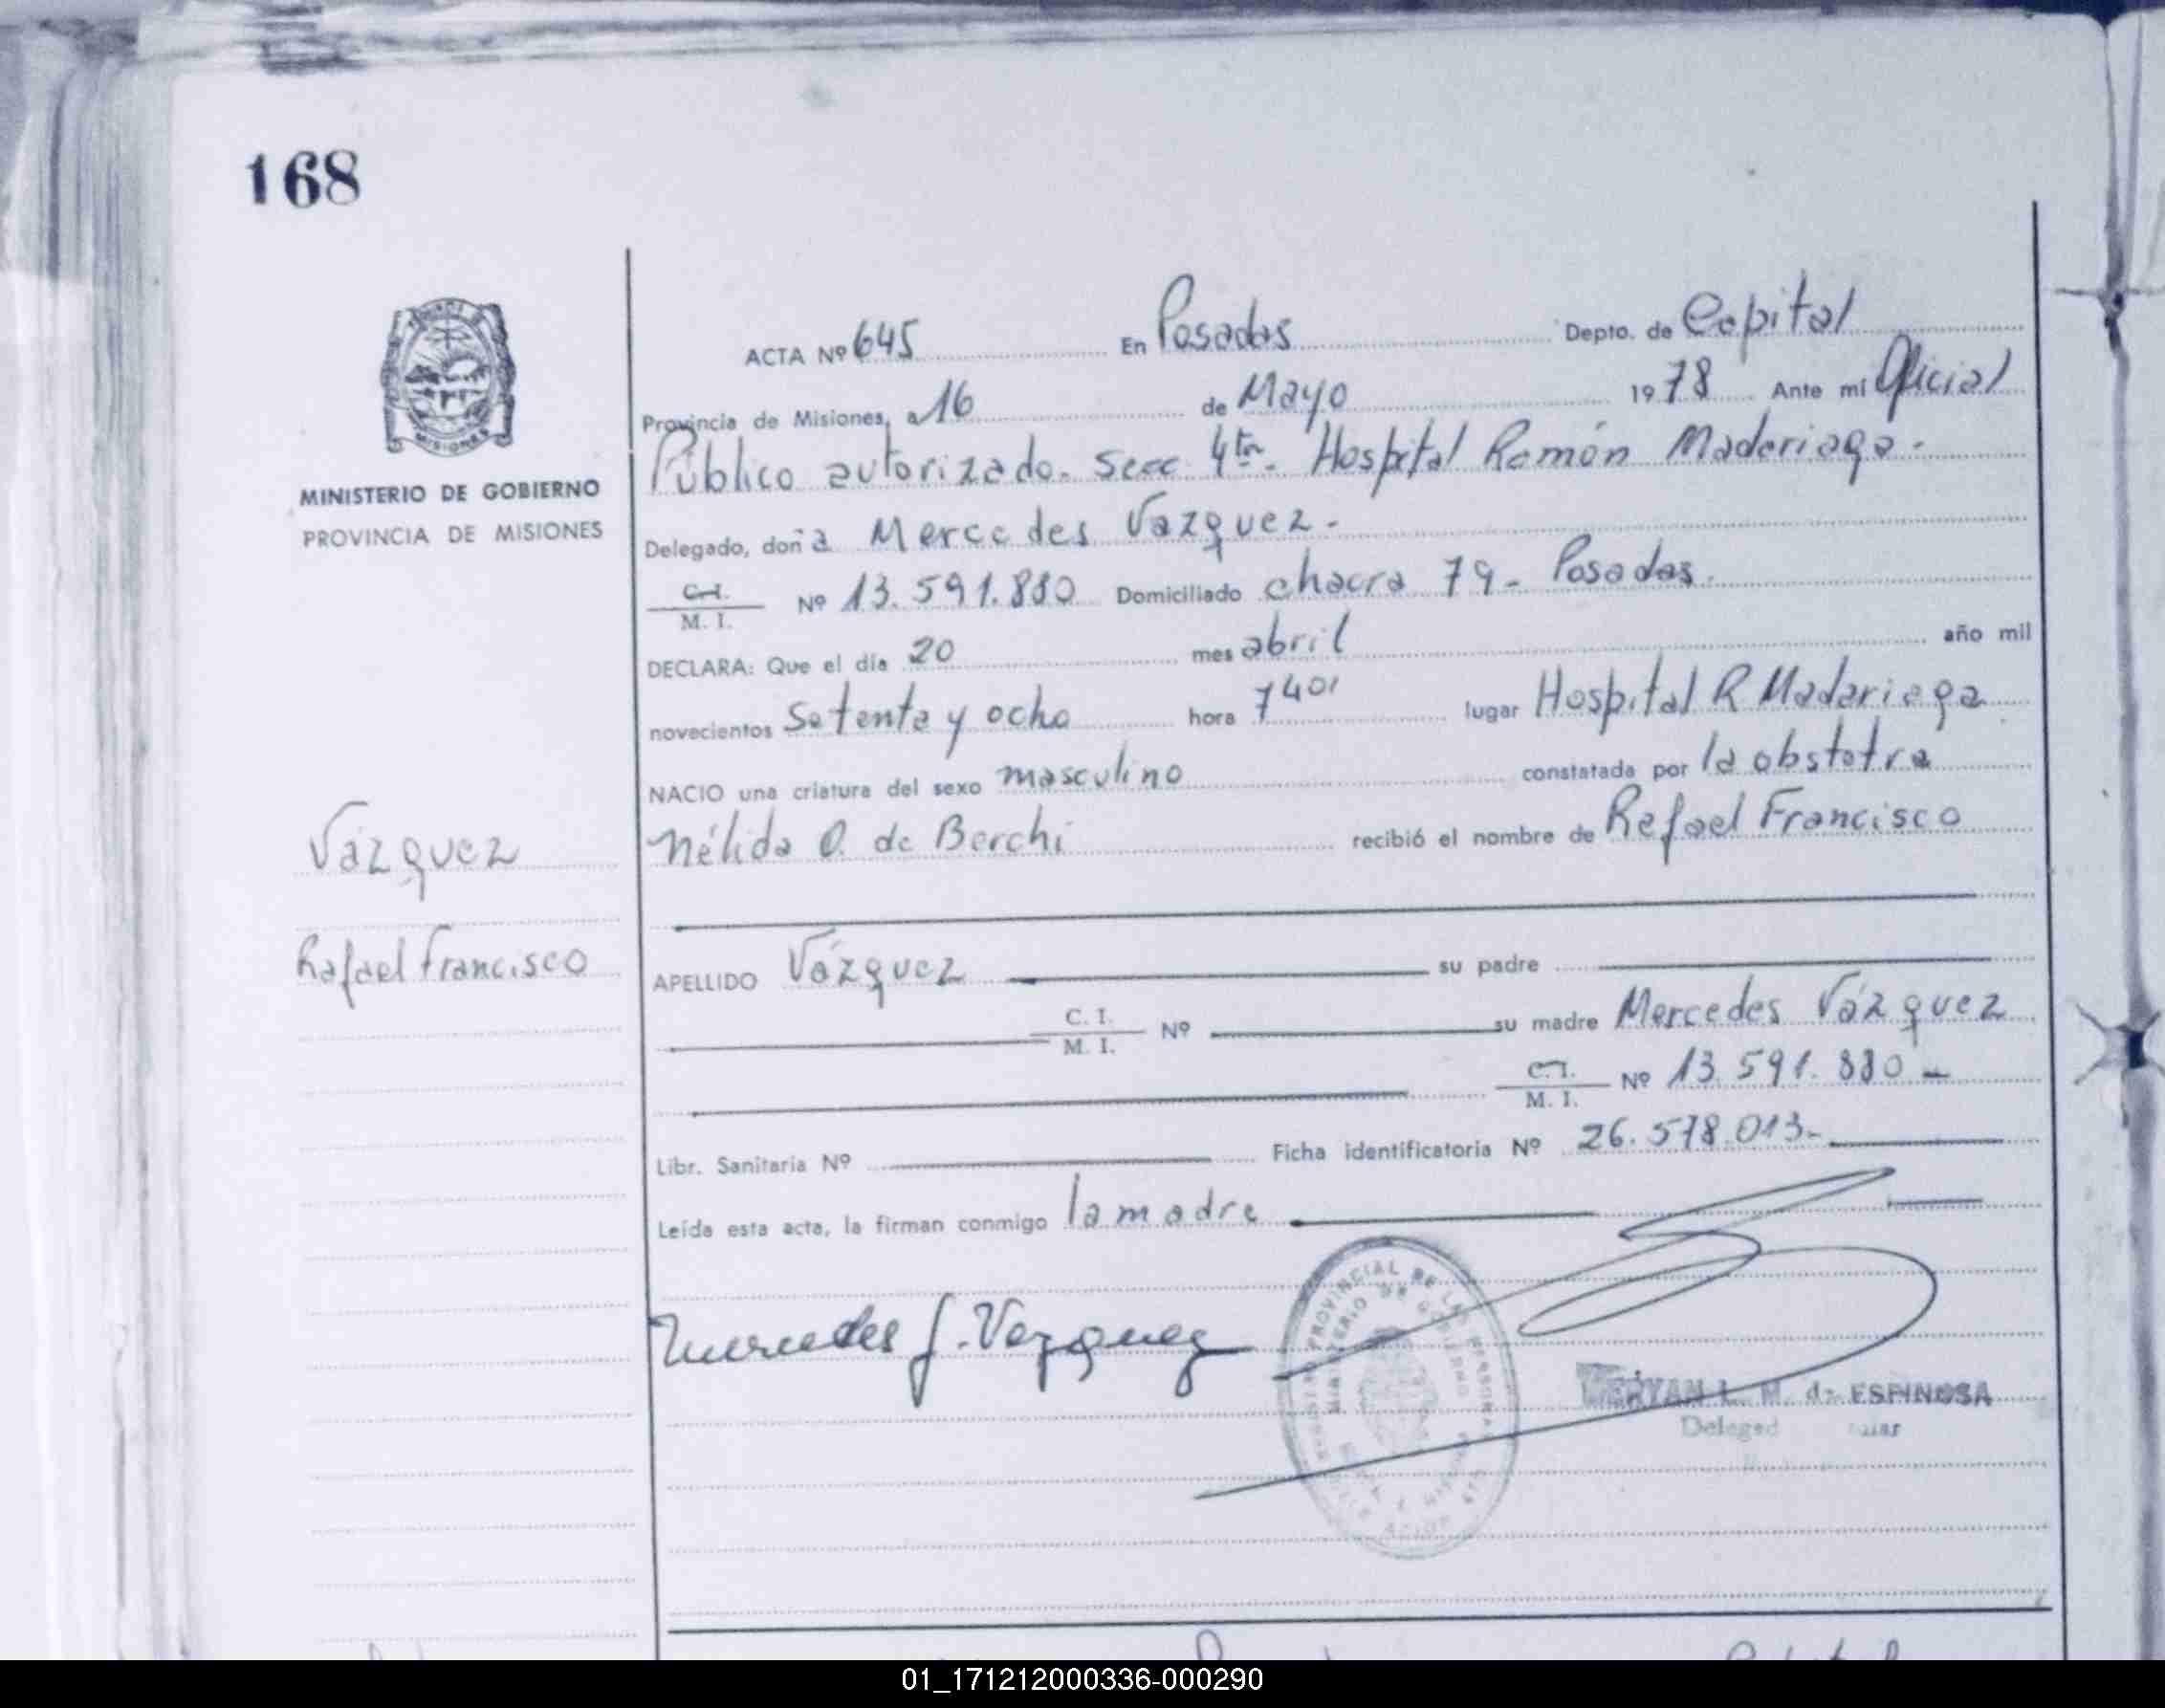 168
MINISTERIO DE GOBIERNO
PROVINCIA DE MISIONES
ACTA Nº 645 En Posadas Depto. de Capital
Provincia de Misiones, a 16 de Mayo 1978 Ante mí Oficial
Público autorizado. Secc. 4ta. Hospital Ramón Madariaga.
Delegado, doña Mercedes Vazquez.
C.I.
M. I. Nº 13.591.880 Domiciliado chacra 79 - Posadas.
DECLARA: Que el día 20 mes abril año mil
novecientos Setenta y ocho hora 7 40' lugar Hospital R Madariaga
NACIO una criatura del sexo masculino constatada por la obstetra
Nélida O. de Berchi recibió el nombre de Rafael Francisco
Vázquez
Rafael Francisco
APELLIDO Vázquez su padre
C. I.
M. I. Nº su madre Mercedes Vázquez
C.I.
M. I. Nº 13.591.880 -
Libr. Sanitaria Nº Ficha identificatoria Nº 26.578.013-
Leída esta acta, la firman conmigo la madre
Mercedes J. Vazquez
PROVINCIAL DE LAS PERSONAS
MINISTERIO DE GOBIERNO
L. M. de ESPINOSA
01_171212000336-000290